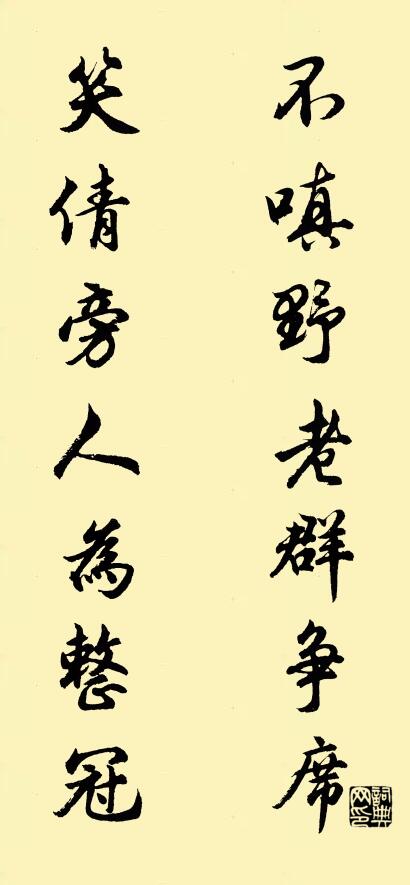 不嗔野老群争席
笑倩旁人為整冠
詞典网印